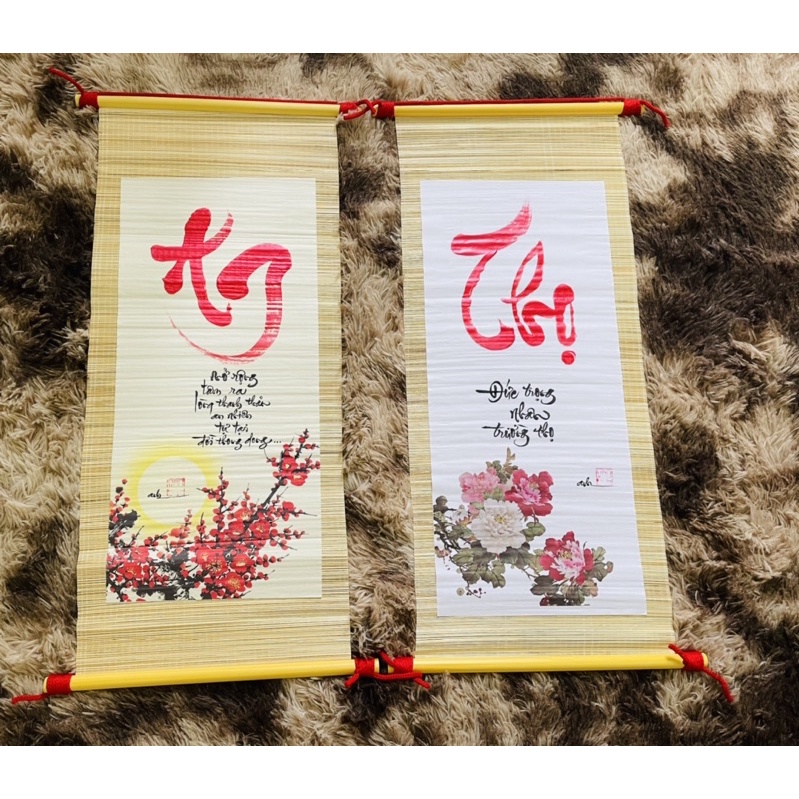 Mở rộng
tâm ra
lòng thanh thản
an nhiên
tự tại
đời thong dong...
Thọ
Đức trọng
nhân
trường thọ